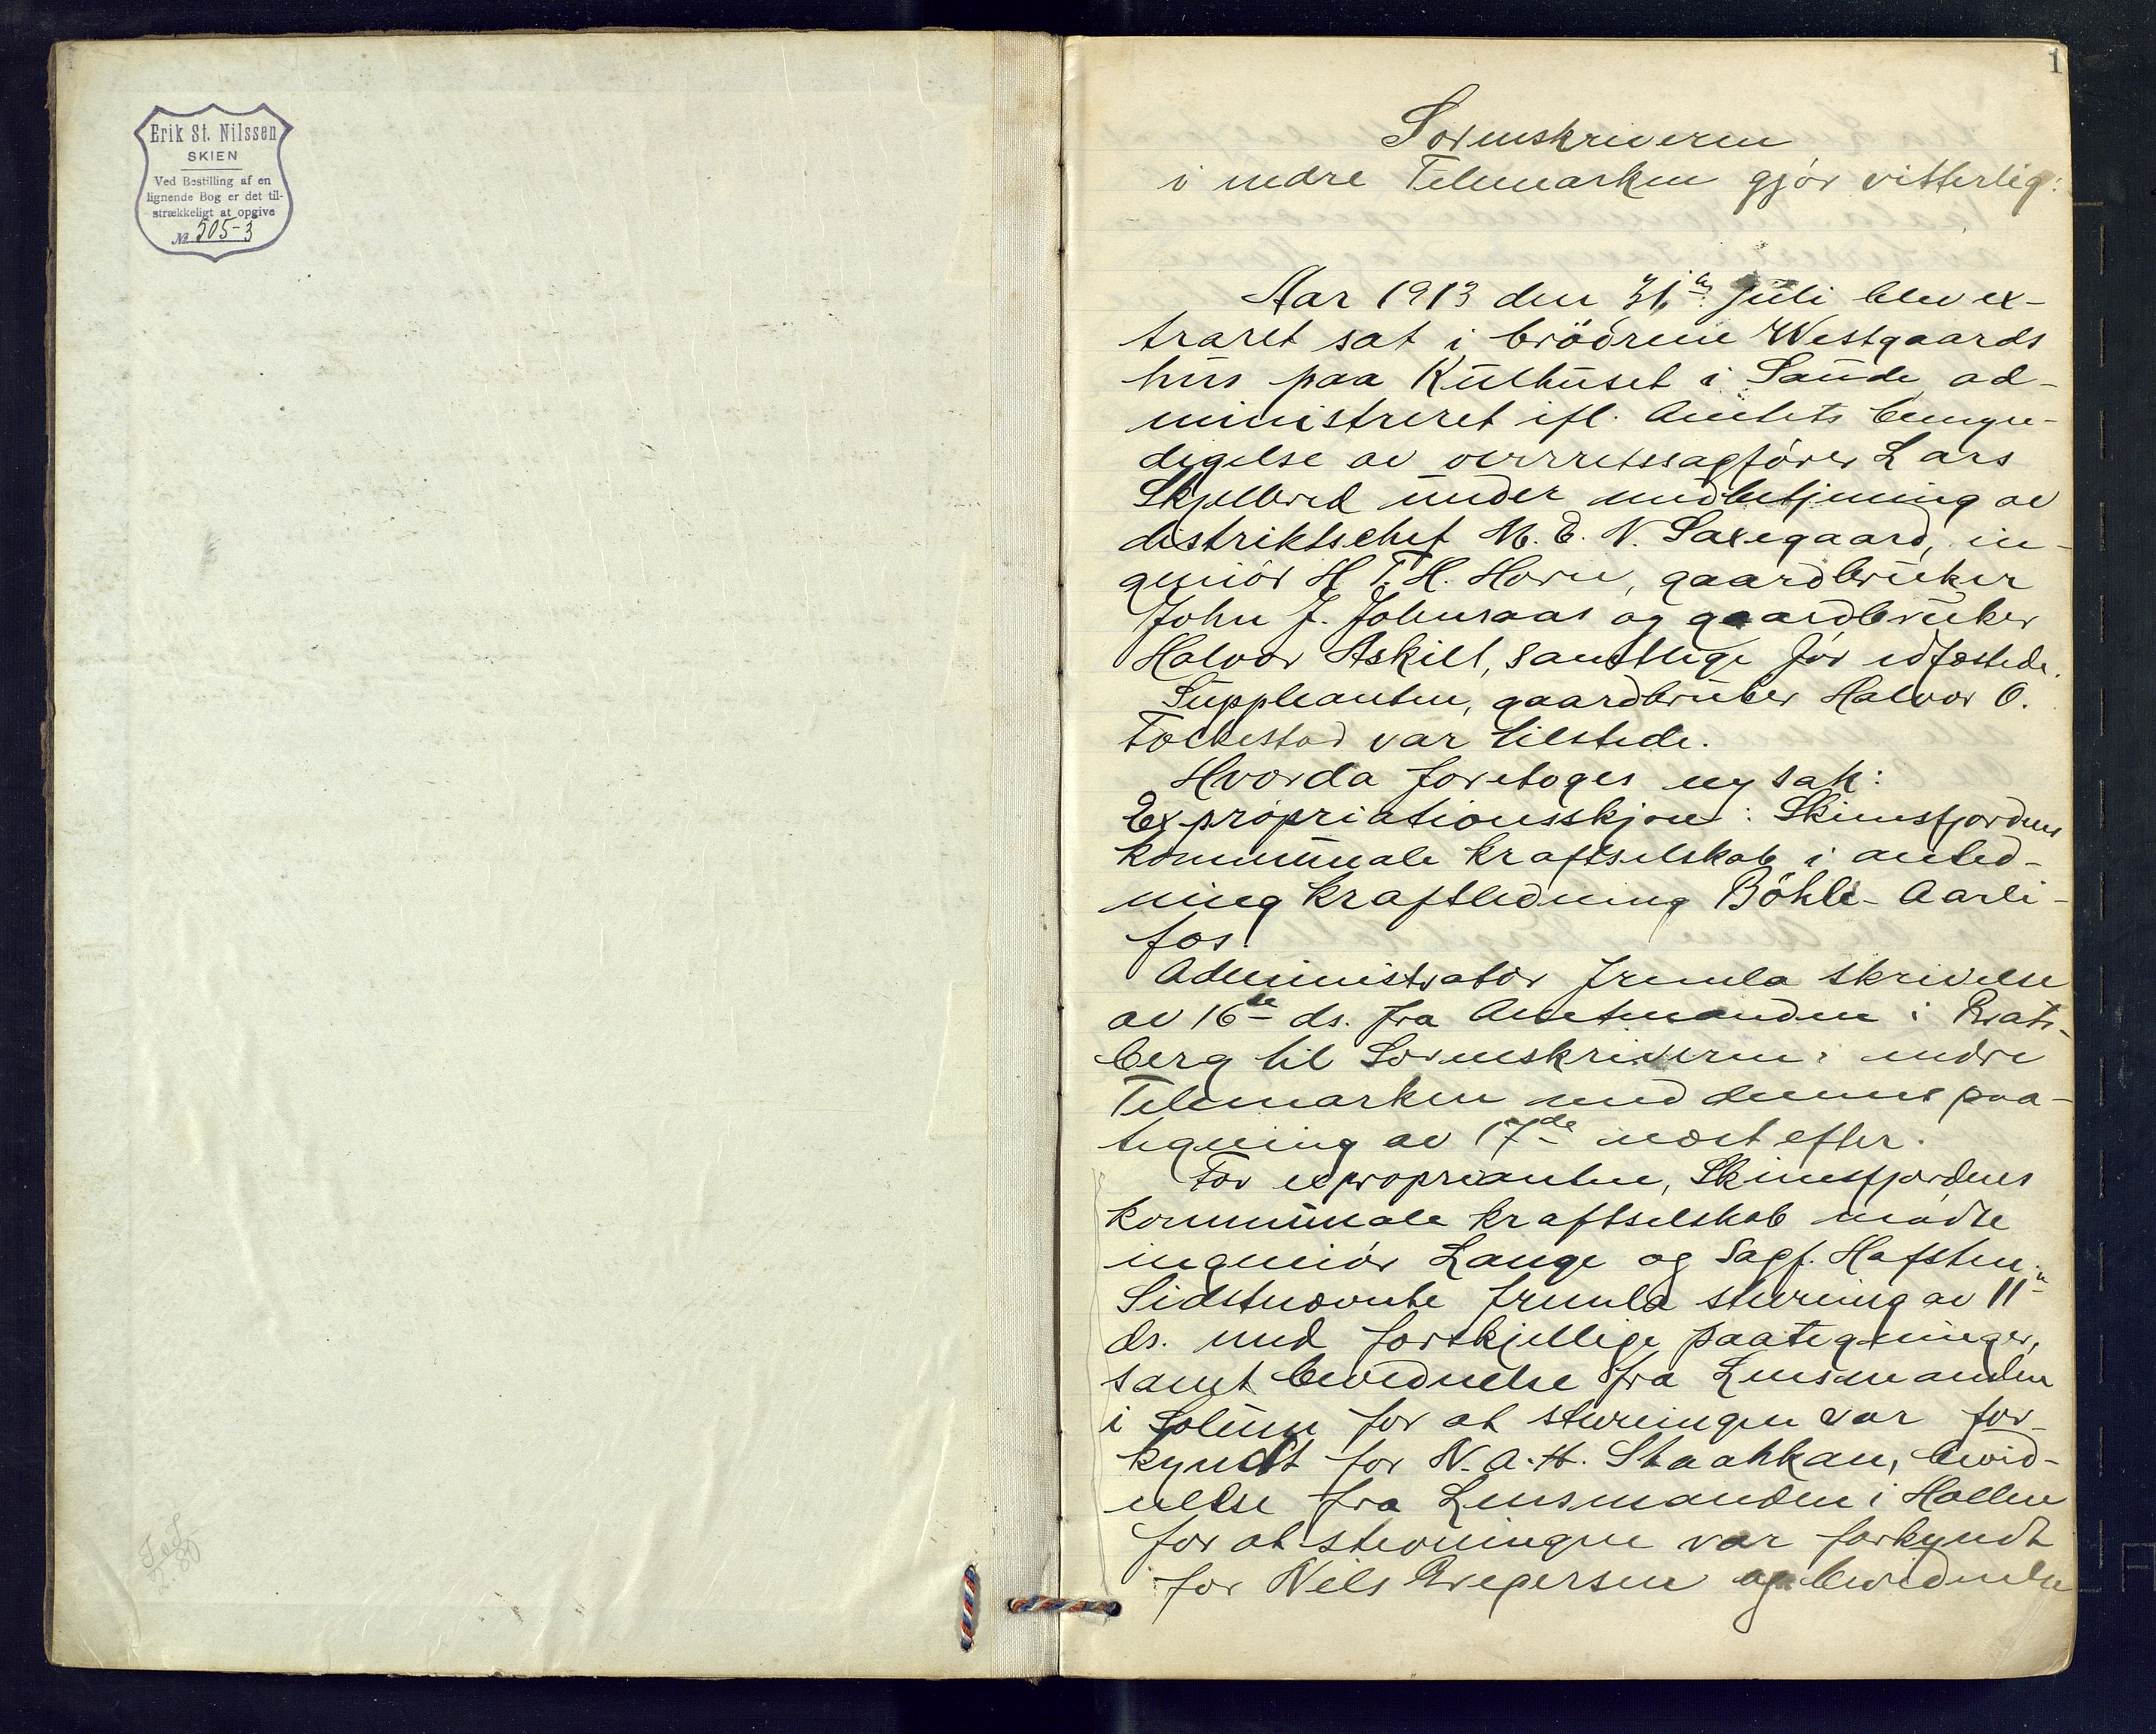 Erik St. Nilssen
SKIEN
Ved Bestilling af en
lignende Bog er det til-
strækkeligt at opgive
№ 505-3
1
Sorenskriveren
i nedre Telemarken gjör vitterlig:
Aar 1913 den 31te juli blev ex-
traret sat i brödrene Westgaards
hus paa Kulhuset i Saude, ad-
ministreret ifl. Amtets bemyn-
digelse av overretssagförer Lars
Skjelbred under medbetjening av
distriktschef M. E. N. Saxegaard, in-
geniör H. T. H. Horn, gaardbruker
John J. Johnsaas og gaardbruker
Halvor Askilt, samtlige för edfæstede.
Suppleanten, gaardbruker Halvor O.
Folkestad var tilstede.
Hvorda foretoges ny sak:
Expropriationsskjön: Skiensfjordens
kommunale kraftselskab i anled-
ning kraftledning Böhle-Aarli-
fos.
Administrator fremla skrivelse
av 16de ds. fra Amtmanden i Brats-
berg til Sorenskriveren i nedre
Telemarken med dennes paa-
tegning av 17de næst efter.
For exproprianten, Skiensfjordens
kommunale kraftselskab mödte
ingeniör Lange og Sagf. Hafsten.
Sidstnævnte fremla stevning av 11te
ds. med forskjellige paategninger,
samt bevidnelse fra Lensmanden
i Solum for at stevningen var for-
kyndt for N. A. H. Staahkan, bevid-
nelse fra Lensmanden i Hollen
for at stevningen var forkyndt
for Nils Bregersen og bevidnelse